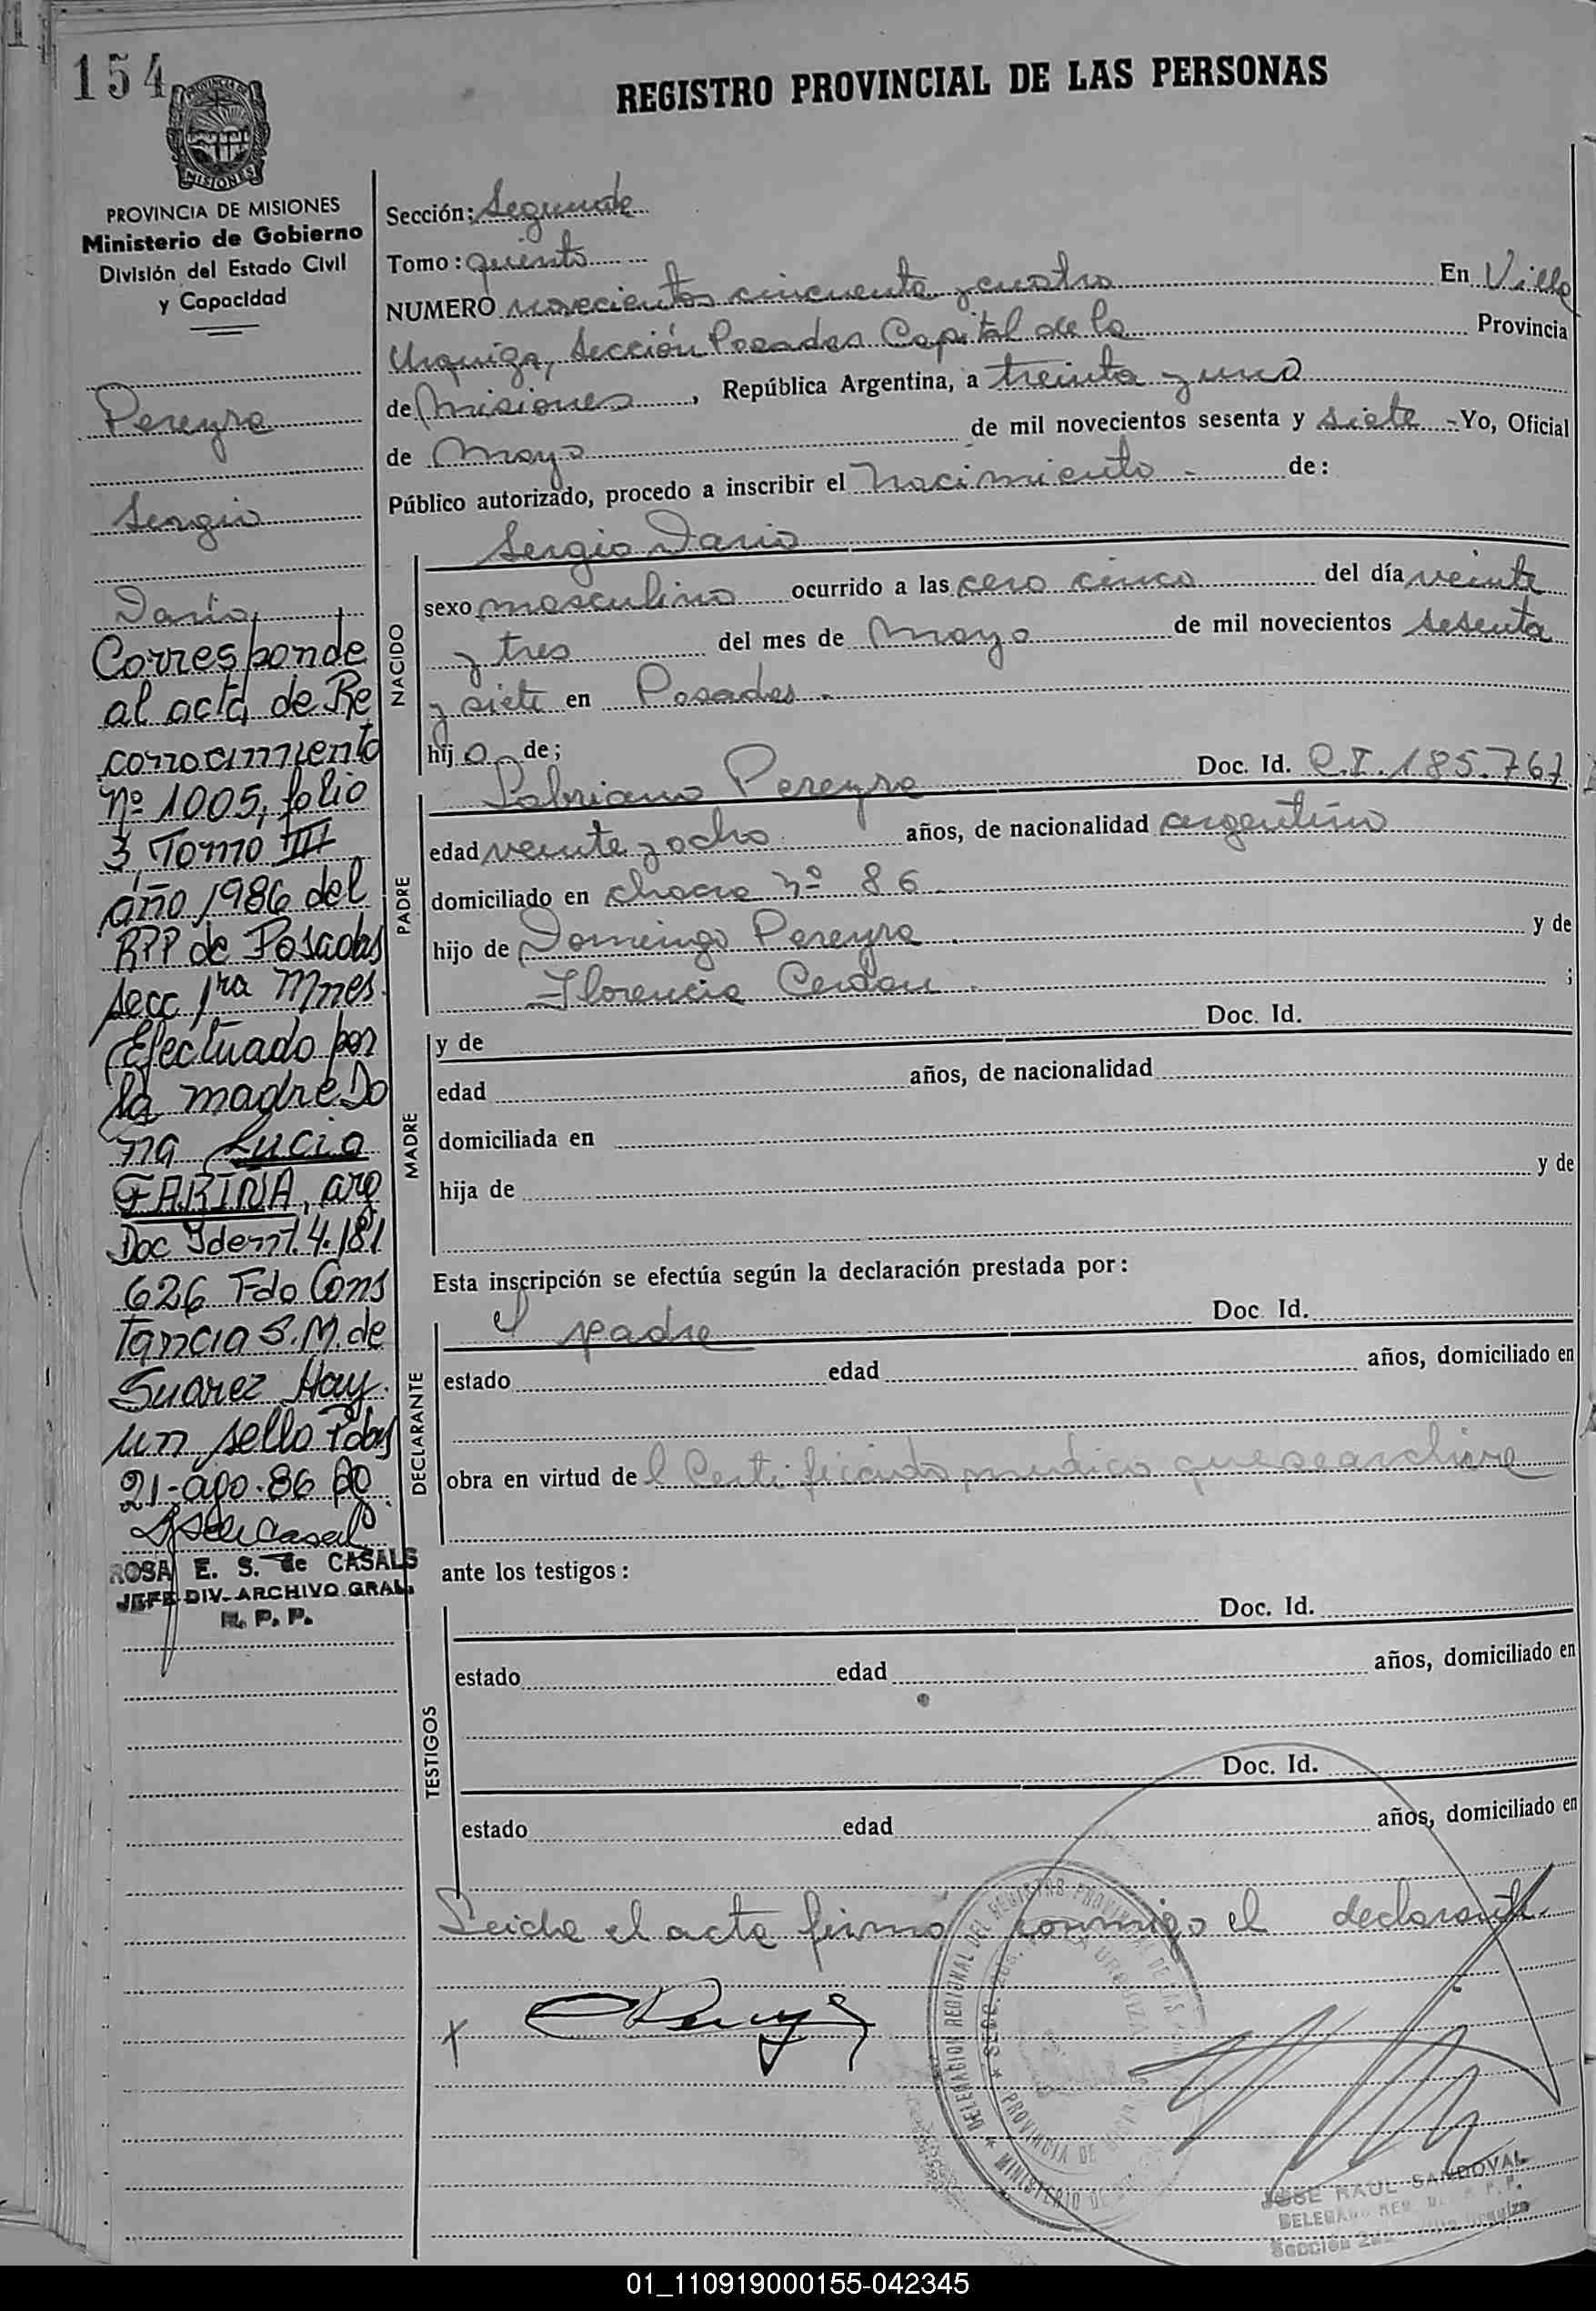 154
PROVINCIA DE MISIONES
Ministerio de Gobierno
División del Estado Civil
y Capacidad
Pereyra
Sergio
Dario
Corresponde
al acta de Re
conocimiento
nº 1005, folio
3, Tomo III
año 1986 del
RPP de Posadas
secc 1ra Mnes.
Efectuado por
la madre Do
ña Lucia
FARIÑA, arg
Doc Ident. 4.181
626 Fdo Cons
tancia S.M. de
Suarez Hay
un sello Pdas
21-ago-86
ROSA E. S. de CASALS
JEFE DIV. ARCHIVO GRAL.
R. P. P.
REGISTRO PROVINCIAL DE LAS PERSONAS
Sección: Segunda
Tomo: quinto
NUMERO novecientos cincuenta y cuatro En Villa
Urquiza, Sección Posadas Capital de la Provincia
de Misiones, República Argentina, a treinta y uno
de Mayo de mil novecientos sesenta y siete - Yo, Oficial
Público autorizado, procedo a inscribir el Nacimiento - de:
NACIDO
Sergio Dario
sexo masculino ocurrido a las cero cinco del día veinte
y tres del mes de Mayo de mil novecientos sesenta
y siete en Posadas.
hijo de;
PADRE
Pereyra Doc. Id. C.I. 185.767
edad veinte y ocho años, de nacionalidad argentino
domiciliado en chacra nº 86
hijo de Domingo Pereyra y de
Florencia ;
MADRE
y de Doc. Id.
edad años, de nacionalidad
domiciliada en
hija de y de
Esta inscripción se efectúa según la declaración prestada por:
DECLARANTE
el padre Doc. Id.
estado edad años, domiciliado en
obra en virtud del Certificado medico que se archiva
ante los testigos:
TESTIGOS
Doc. Id.
estado edad años, domiciliado en
Doc. Id.
estado edad años, domiciliado en
Leida el acta firma conmigo el declarante.
DELEGACION REGIONAL DEL REGISTRO PROVINCIAL DE LAS
PROVINCIA DE
MINISTERIO DE
JOSE RAUL SANDOVAL
01_110919000155-042345